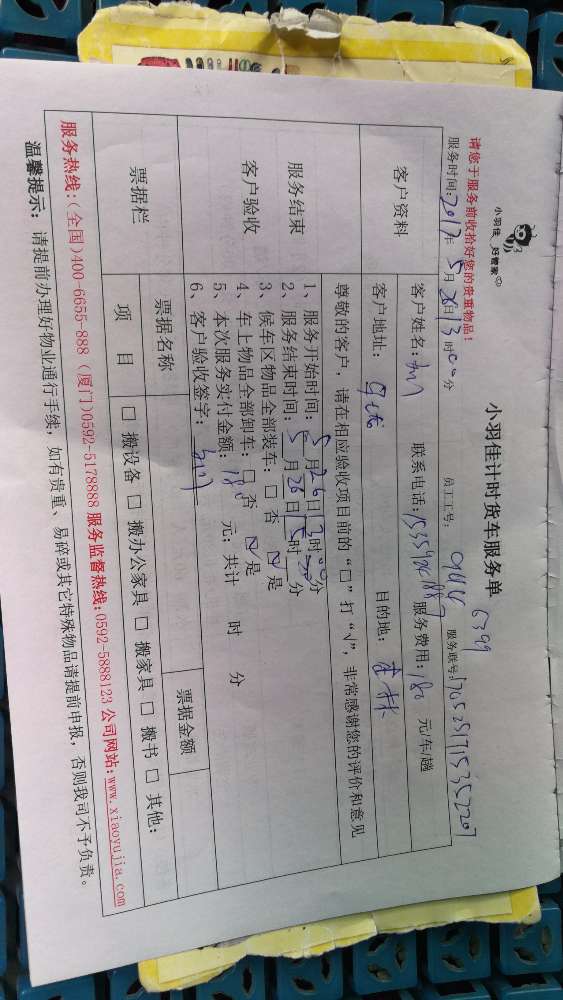 小羽佳 好管家
小羽佳计时货车服务单
请您于服务前收拾好您的贵重物品！
服务时间：2017年5月26日13时00分 员工工号： 6399 服务联号：
客户资料
客户姓名： 联系电话： 服务费用：180元/车/趟
客户地址： 目的地：
服务结束
客户验收
尊敬的客户，请在相应验收项目前的“□”打“√”，非常感谢您的评价和意见
1、服务开始时间：5月26日13时00分
2、服务结束时间：5月26日15时分
3、候车区物品全部装车：□ 否 ☑ 是
4、车上物品全部卸车：□ 否 ☑ 是
5、本次服务实付金额：180元；共计 时 分
6、客户验收签字：
票据栏
票据名称 票据金额
项 目 □ 搬设备 □ 搬办公家具 □ 搬家具 □ 搬书 □ 其他：
服务热线：(全国)400-6655-888 (厦门)0592-5178888 服务监督热线：0592-5888123 公司网站：www.xiaoyujia.com
温馨提示：请提前办理好物业通行手续，如有贵重、易碎或其它特殊物品请提前申报，否则我司不予负责。